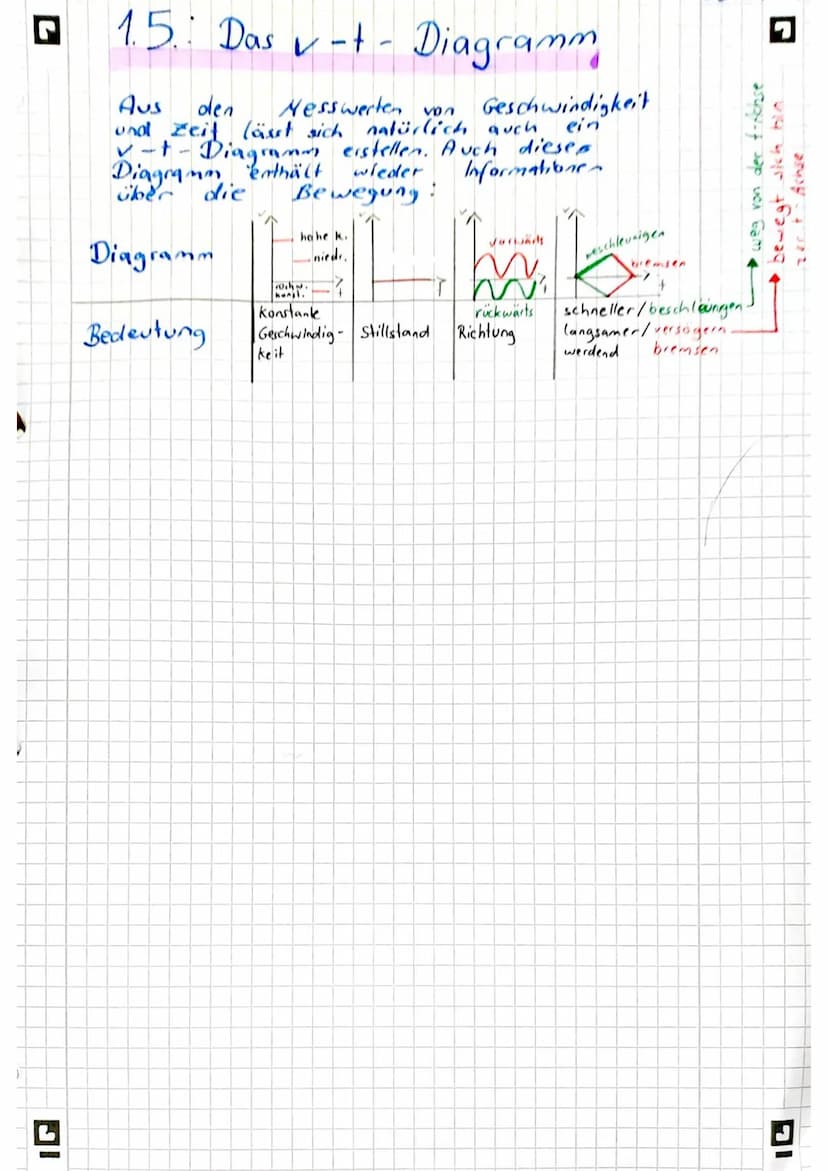 1.5.: Das v-t-Diagramm
Aus den Messwerten von Geschwindigkeit
und Zeit lässt sich natürlich auch ein
v-t-Diagramm erstellen. Auch dieses
Diagramm enthält wieder Informationen
über die Bewegung:
Diagramm
hohe k.
niedr.
vorwärts
beschleunigen
bremsen
t
Bedeutung
konstante
Geschwindig-
keit
Stillstand
rückwärts
Richtung
schneller/beschleungen
langsamer/versögern
werdend bremsen
weg von der t-Achse
bewegt sich hin
zur t-Achse